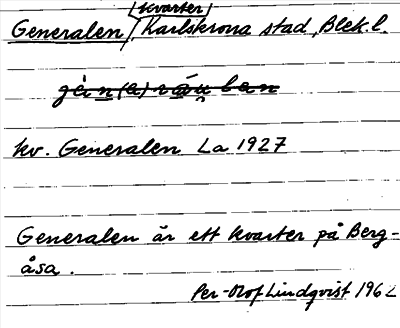 Generalen (kvarter) Karlskrona stad, Blek.l.
kv. Generalen La 1927
Generalen är ett kvarter på Berg-
åsa.
Per-Olof Lindqvist 1962